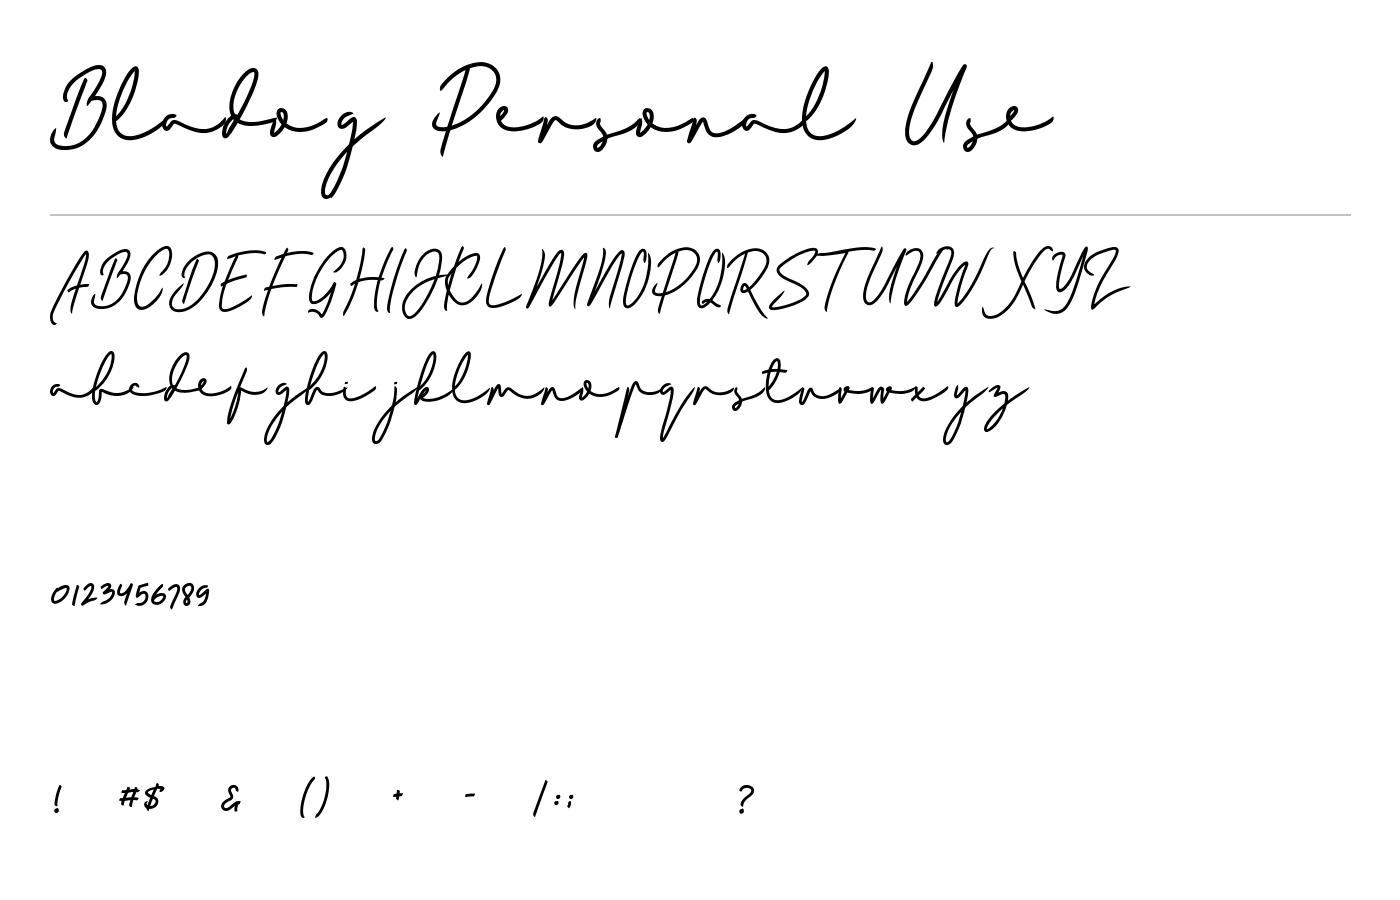 Bladog Personal Use
ABCDEFGHIJKLMNOPQRSTUVWXYZ
abcdefghijklmnopqrstuvwxyz
0123456789
! #$ & () + - /:; ?